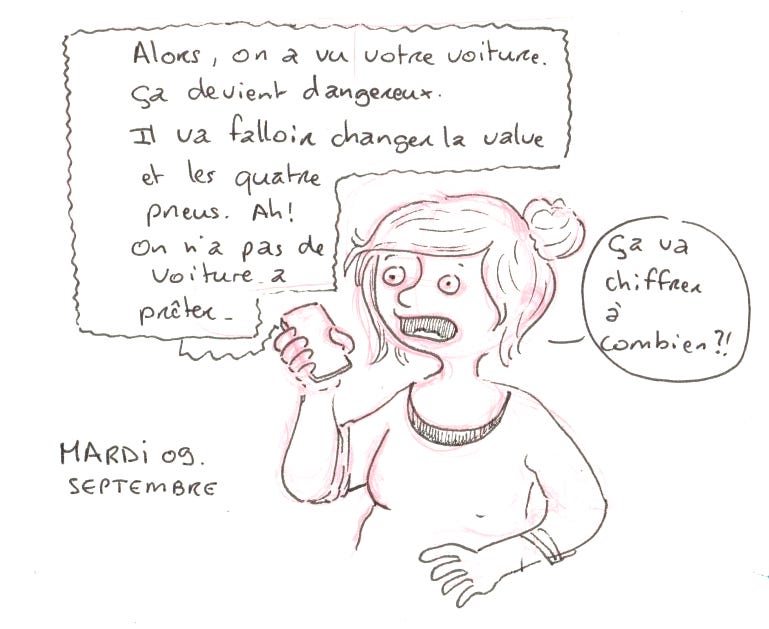 Alors, on a vu votre voiture.
ça devient dangereux.
Il va falloir changer la valve
et les quatre
pneus. Ah!
On n'a pas de
voiture a
prêter_
ça va
chiffrer
à
combien?!
MARDi 09.
SEPTEMBRE